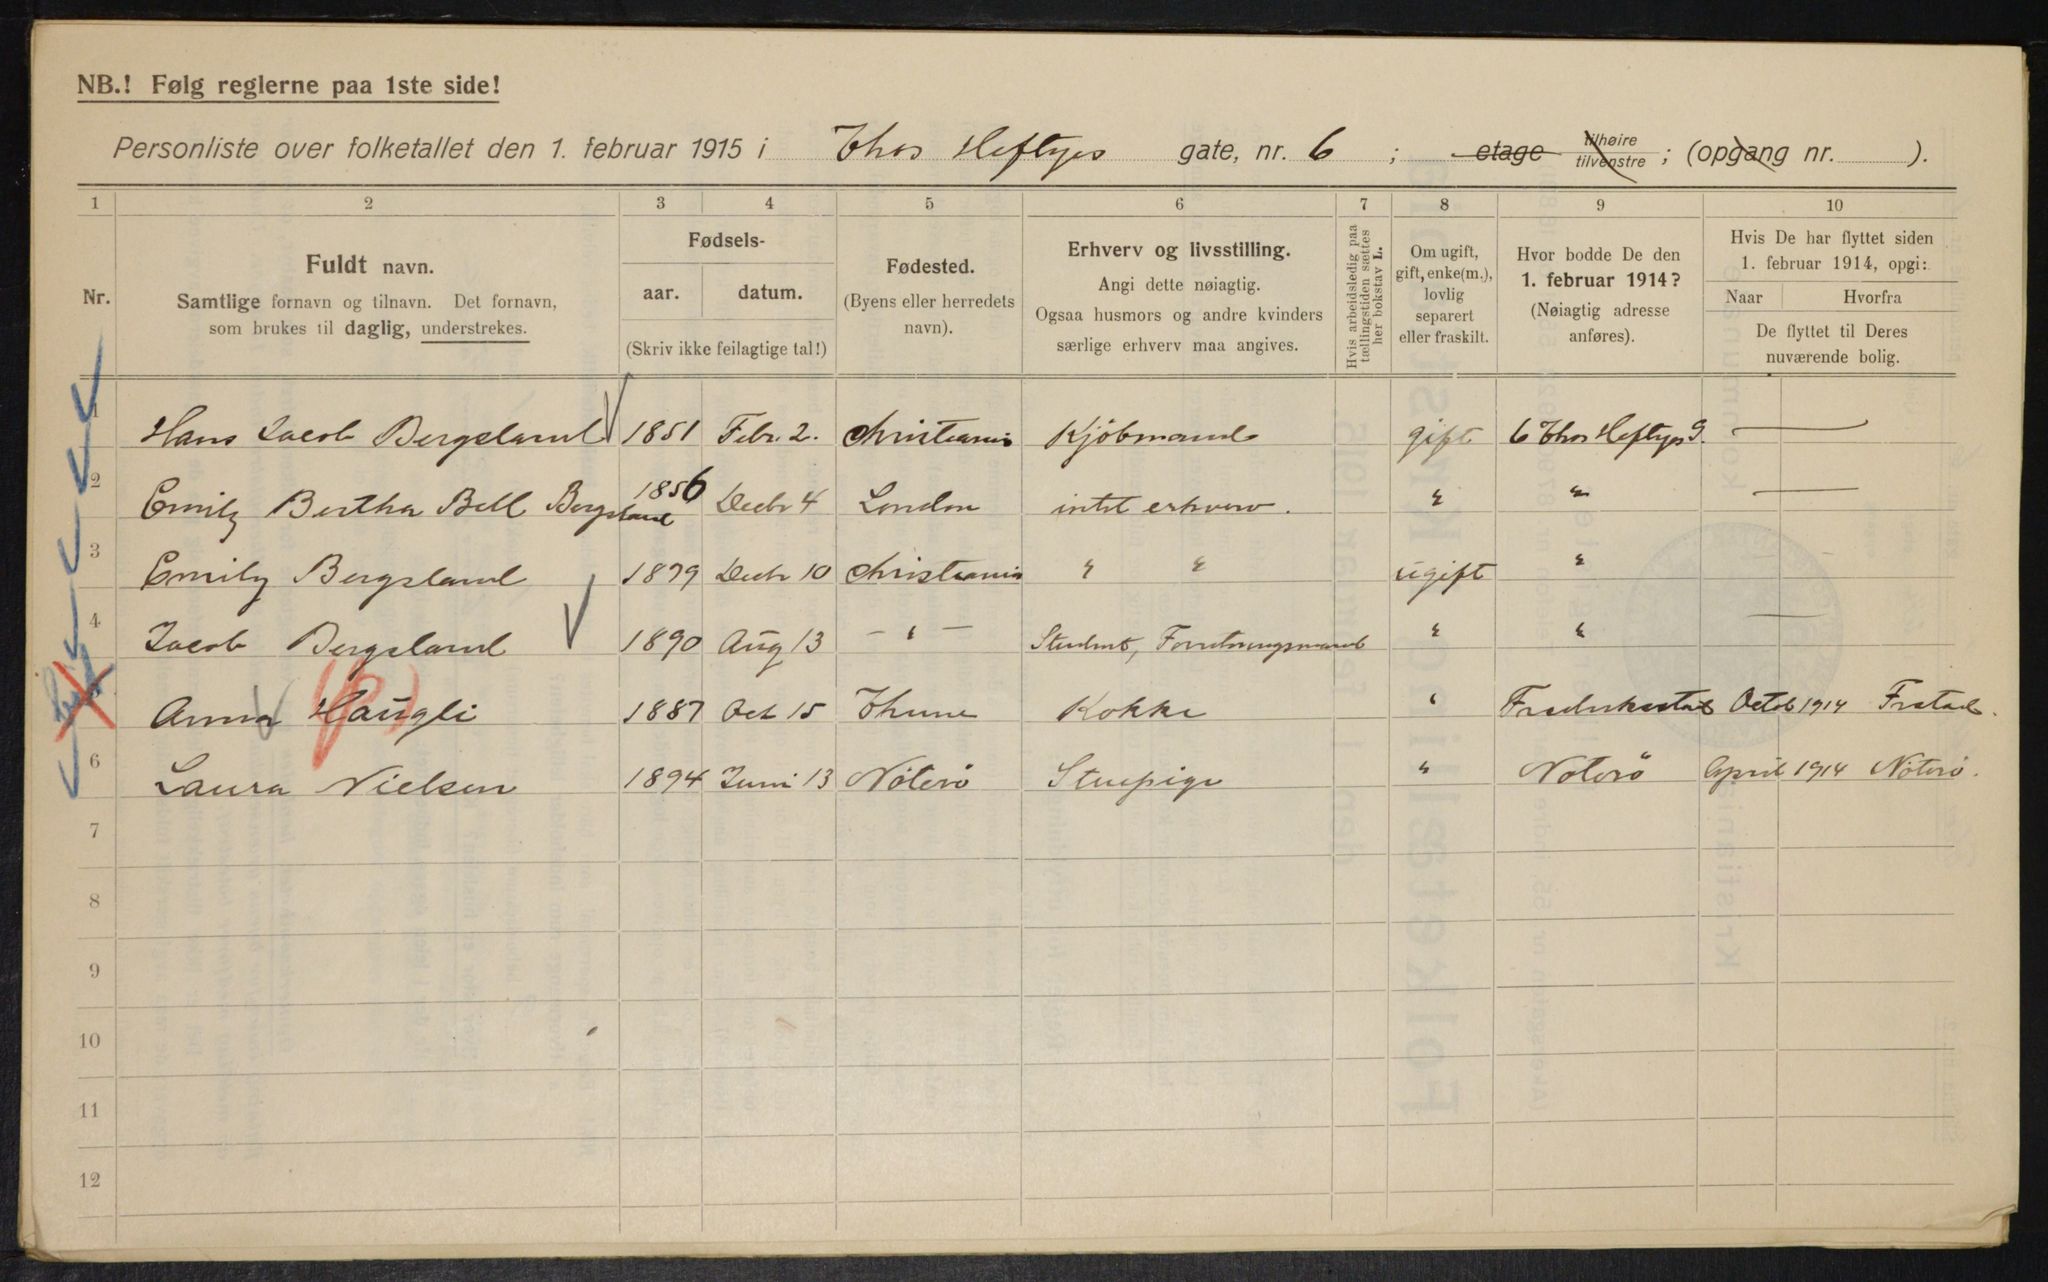 NB.! Følg reglerne paa 1ste side!
Personliste over folketallet den 1. februar 1915 i Thos Heftyes gate, nr. 6 ; etage tilhøire tilvenstre ; (opgang nr. ).
1 2 3 4 5 6 7 8 9 10
Nr.
Fuldt navn.
Samtlige fornavn og tilnavn. Det fornavn,
som brukes til daglig, understrekes.
Fødsels-
aar. datum.
(Skriv ikke feilagtige tal!)
Fødested.
(Byens eller herredets
navn).
Erhverv og livsstilling.
Angi dette nøiagtig.
Ogsaa husmors og andre kvinders
særlige erhverv maa angives.
Hvis arbeidsledig paa
tællingstiden sættes
her bokstav L.
Om ugift,
gift, enke(m.),
lovlig
separert
eller fraskilt.
Hvor bodde De den
1. februar 1914?
(Nøiagtig adresse
anføres).
Hvis De har flyttet siden
1. februar 1914, opgi:
Naar Hvorfra
De flyttet til Deres
nuværende bolig.
1 Hans Jacob Bergsland 1851 Febr. 2. Christiania Kjöbmand gift 6 Thos Heftyes G. —
2 Emily Bertha Bell Bergsland 1856 Decbr 4 London intet erhverv. " " —
3 Emily Bergsland 1879 Decbr 10 Christiania " " ugift "
4 Jacob Bergsland 1890 Aug 13 — " — Student, Forretningsmand " " —
5 Anna Haugli 1887 Oct 15 Thune Kokke " Frederikstad Octob 1914 Frstad.
6 Laura Nielsen 1894 Juni 13 Nöterö Stuepige " Nöterö April 1914 Nöterö.
7
8
9
10
11
12